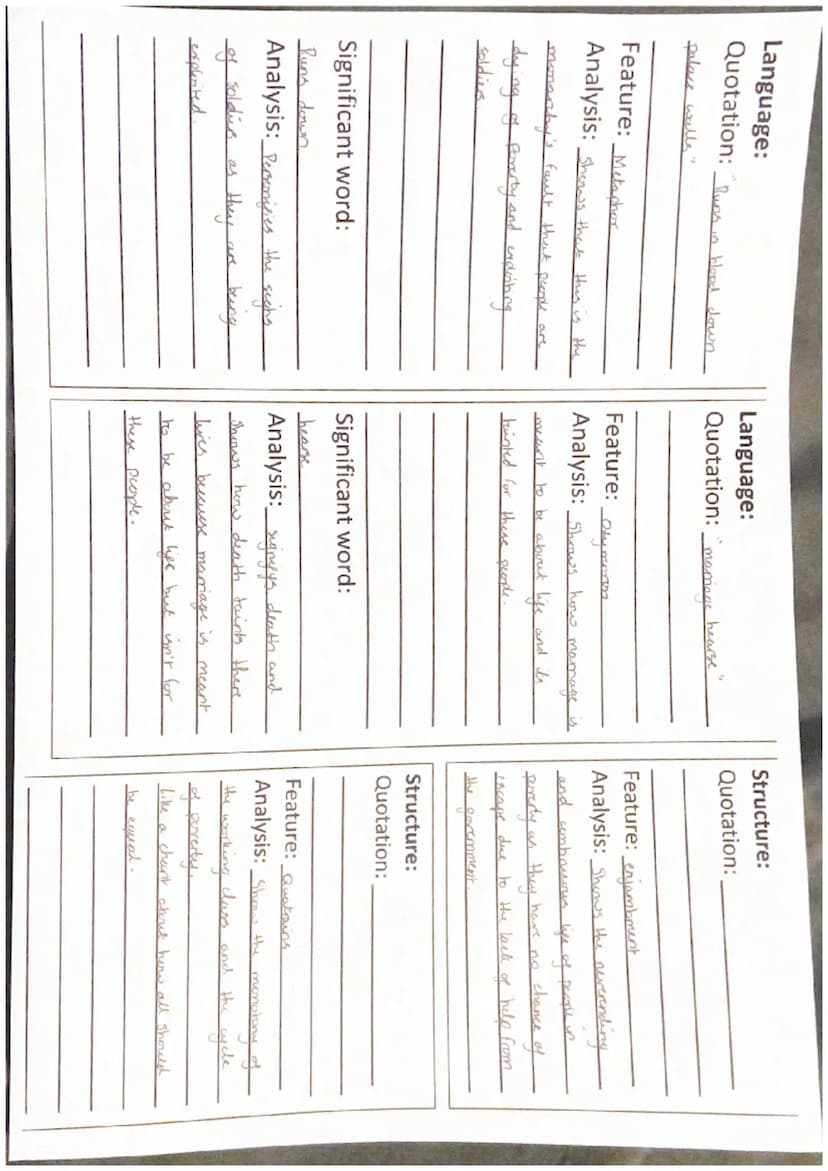 Language:
Quotation: "Runs in blood down
palace walls"
Feature: Metaphor
Analysis: Shows that this is the
monarchy's fault that people are
dying of poverty and exploiting
soldiers
Significant word:
Runs down
Analysis: Personifies the sighs
of soldiers as they are being
exploited.
Language:
Quotation: "marriage hearse"
Feature: Oxymoron
Analysis: Shows how marriage is
meant to be about life and its
tainted for these people.
Significant word:
hearse
Analysis: signifys death and
shows how death taints there
lives because marriage is meant
to be about life but isn't for
these people.
Structure:
Quotation:
Feature: enjambment
Analysis: Shows the neverending
and continuous life of people in
poverty as they have no chance of
escape due to the lack of help from
the government.
Structure:
Quotation:
Feature: Quatrains
Analysis: Show the monotony of
the working class and the cycle
of poverty.
like a chant about how all should
be equal.